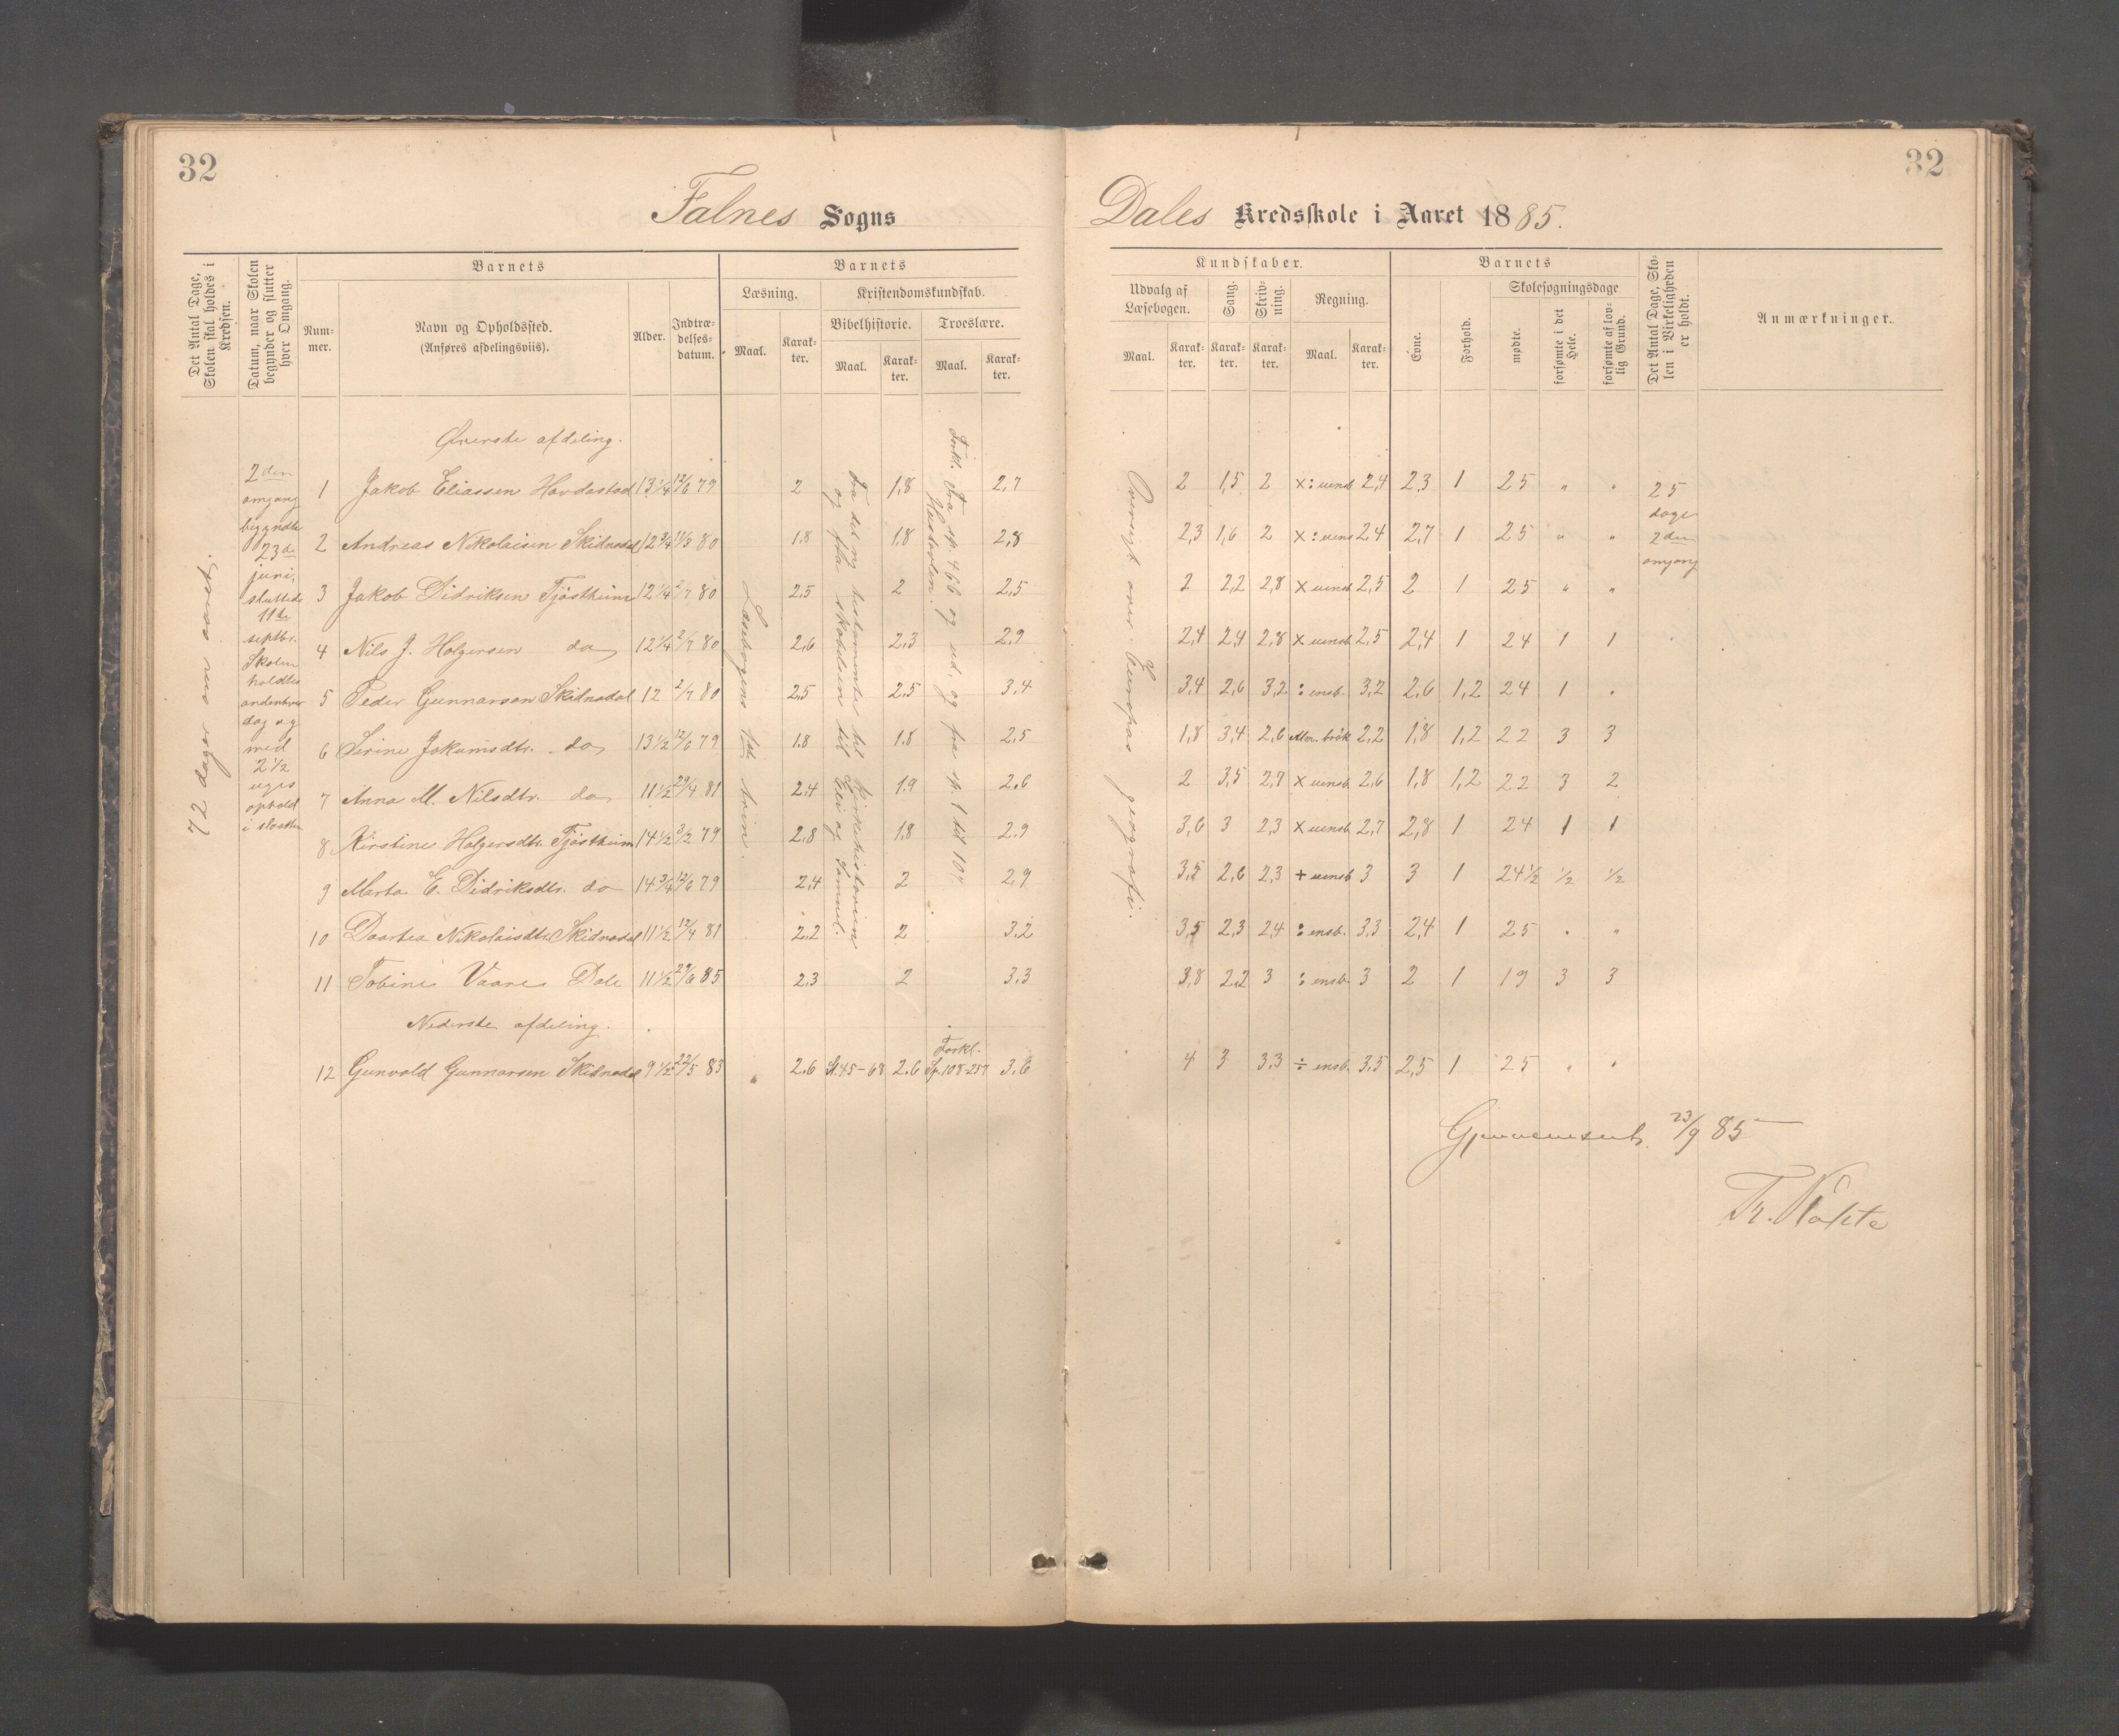 32
32
Falnes Sogns
Dales Kredsskole i Aaret 1885.
Det Antal Dage, Skolen skal holdes i Kredsen.
Datum, naar Skolen begynder og slutter hver Omgang.
Barnets
Num-mer.
Navn og Opholdssted.
(Anføres afdelingsviis).
Alder.
Indtræ-delses-datum.
Barnets
Læsning.
Maal.
Karak-ter.
Kristendomskundskab.
Bibelhistorie.
Maal.
Karak-ter.
Troeslære.
Maal.
Karak-ter.
Kundskaber.
Udvalg af Læsebogen.
Maal.
Karak-ter.
Sang.
Karak-ter.
Skriv-ning.
Karak-ter.
Regning.
Maal.
Karak-ter.
Barnets
Evne.
Forhold.
Skolesøgningsdage
mødte.
forsømte i det Hele.
forsømte af lov-lig Grund.
Det Antal Dage, Sko-len i Virkeligheden er holdt.
Anmærkninger.
72 dager
2den omgang begyndte 23de juni, sluttede 11te septbr. Skolen holdtes andenhver dag og med 2½ uges ophold i slaatten
Øverste afdeling.
1 Jakob Eliassen Hovdastad 13¼ 12/6 79 2 1,8 2,7 2 1,5 2 x : uensb 2,4 2,3 1 25 " "
2 Andreas Nikolaisen Skidnadal 12¾ 11/3 80 1,8 1,8 2,8 2,3 1,6 2 x : uens 2,4 2,7 1 25 " "
3 Jakob Didriksen Tjøstheim 12¼ 2/7 80 2,5 2 2,5 2 2,2 2,8 x uensb 2,5 2 1 25 " "
4 Nils J. Holgersen do 12¼ 2/7 80 2,6 2,3 2,9 2,4 2,4 2,8 x uensb. 2,5 2,4 1 24 1 1
5 Peder Gunnarsen Skidnadal 12 2/7 80 2,5 2,5 3,4 3,4 2,6 3,2 : ensb. 3,2 2,6 1,2 24 1 "
6 Serine Jokumsdtr. do 13½ 12/6 79 1,8 1,8 2,5 1,8 3,4 2,6 Alm. brøk 2,2 1,8 1,2 22 3 3
7 Anna M. Nilsdtr. do 11½ 29/4 81 2,4 1,9 2,6 2 3,5 2,7 x uensb. 2,6 1,8 1,2 22 3 2
8 Kirstine Holgersdtr. Tjøstheim 14½ 3/2 79 2,8 1,8 2,9 3,6 3 2,3 x uensb. 2,7 2,8 1 24 1 1
9 Marta E. Didriksdtr. do 14¾ 12/6 79 2,4 2 2,9 3,5 2,6 2,3 + uensb 3 3 1 24½ ½ ½
10 Daartea Nikolaisdtr. Skidnadal 11½ 12/4 81 2,2 2 3,2 3,5 2,3 2,4 : ensb. 3,3 2,4 1 25 " "
11 Tobine Vaares Dale 11½ 29/6 85 2,3 2 3,3 3,8 2,2 3 : ensb. 3 2 1 19 3 3
Nederste afdeling.
12 Gunvald Gunnarsen Skidnadal 9½ 22/5 83 2,6 St. 45-68 2,6 Forkl. Sp. 108-257 3,6 4 3 3,3 ÷ ensb. 3,5 2,5 1 25 " "
Læsebogens trin.
Fra det ny testamente til kirkehistorien og fra skabelsen til Eli og Samuel.
Forkl. fra sp. 466 og ud, og fra sp. 1 til 107. Hustavlen.
Oversigt over Europas geografi.
25 dage 2den omgang
Gjennemseet. 23/9 85